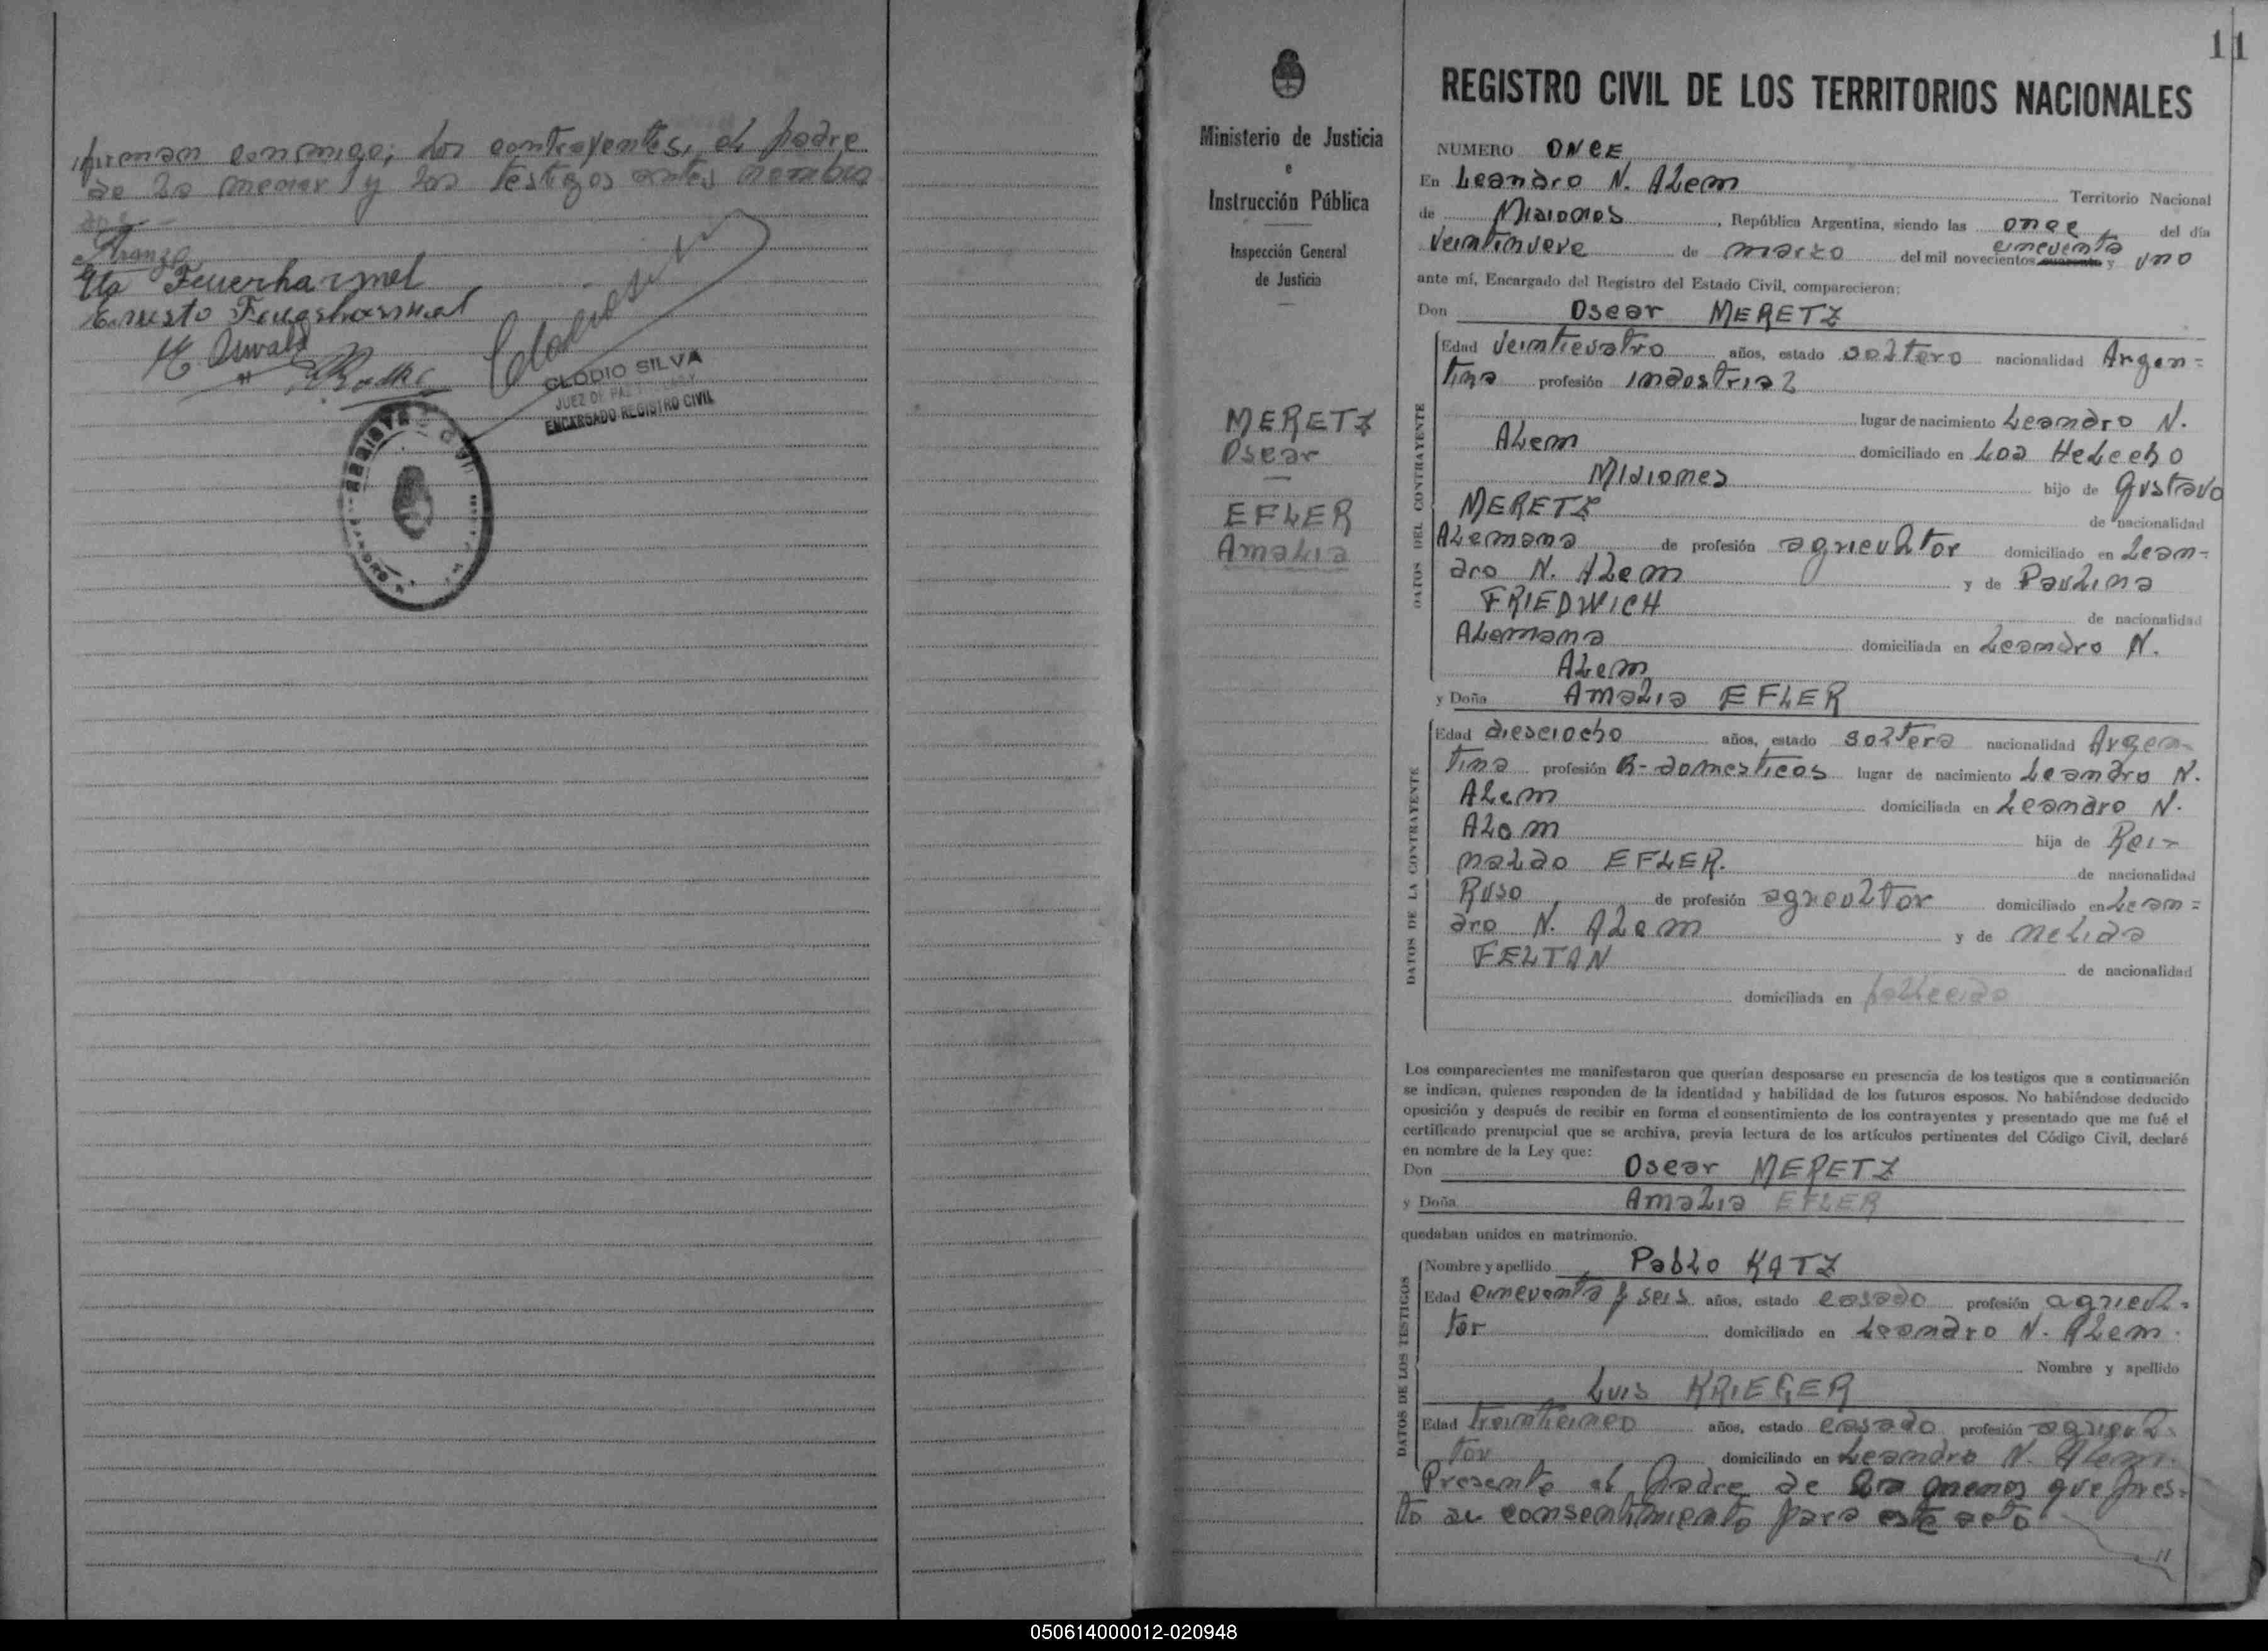 firman conmigo; los contrayentes, el padre
de la menor y los testigos antes nombra
dos
Ela Feuerharmel
Ernesto Feuerharmel
E. Oswald
CLODIO SILVA
JUEZ DE PAZ
ENCARGADO REGISTRO CIVIL
11
Ministerio de Justicia
e
Instrucción Pública
Inspección General
de Justicia
MERETZ
Oscar
EFLER
Amalia
REGISTRO CIVIL DE LOS TERRITORIOS NACIONALES
NUMERO ONCE
En Leandro N. Alem Territorio Nacional
de Misiones, República Argentina, siendo las once del día
veintinueve de marzo del mil novecientos cuarenta cincuenta y uno
ante mí, Encargado del Registro del Estado Civil, comparecieron:
Don Oscar MERETZ
DATOS DEL CONTRAYENTE
Edad veinticuatro años, estado soltero nacionalidad Argen=
tina profesión industrial
lugar de nacimiento Leandro N.
Alem domiciliado en Los Helecho
Misiones hijo de Gustavo
MERETZ de nacionalidad
Alemana de profesión agricultor domiciliado en Lean-
dro N. Alem y de Paulina
FRIEDWICH de nacionalidad
Alemana domiciliada en Leandro N.
Alem
y Doña Amalia EFLER
DATOS DE LA CONTRAYENTE
Edad diesciocho años, estado soltera nacionalidad Argen-
tina profesión Q-domesticos lugar de nacimiento Leandro N.
Alem domiciliada en Leandro N.
Alem hija de Rei-
naldo EFLER. de nacionalidad
Ruso de profesión agricultor domiciliado en Lean=
dro N. Alem y de Nelida
FELTAN de nacionalidad
domiciliada en fallecida
Los comparecientes me manifestaron que querían desposarse en presencia de los testigos que a continuación
se indican, quienes responden de la identidad y habilidad de los futuros esposos. No habiéndose deducido
oposición y después de recibir en forma el consentimiento de los contrayentes y presentado que me fué el
certificado prenupcial que se archiva, previa lectura de los artículos pertinentes del Código Civil, declaré
en nombre de la Ley que:
Don Oscar MERETZ
y Doña Amalia EFLER
quedaban unidos en matrimonio.
DATOS DE LOS TESTIGOS
Nombre y apellido Pablo KATZ
Edad cincuenta y seis años, estado casado profesión agricul-
tor domiciliado en Leandro N. Alem.
Nombre y apellido
Luis KRIEGER
Edad treinticinco años, estado casado profesión agricul-
tor domiciliado en Leandro N. Alem.
Presente el padre de la menor que pres-
ta su consentimiento para este acto
050614000012-020948